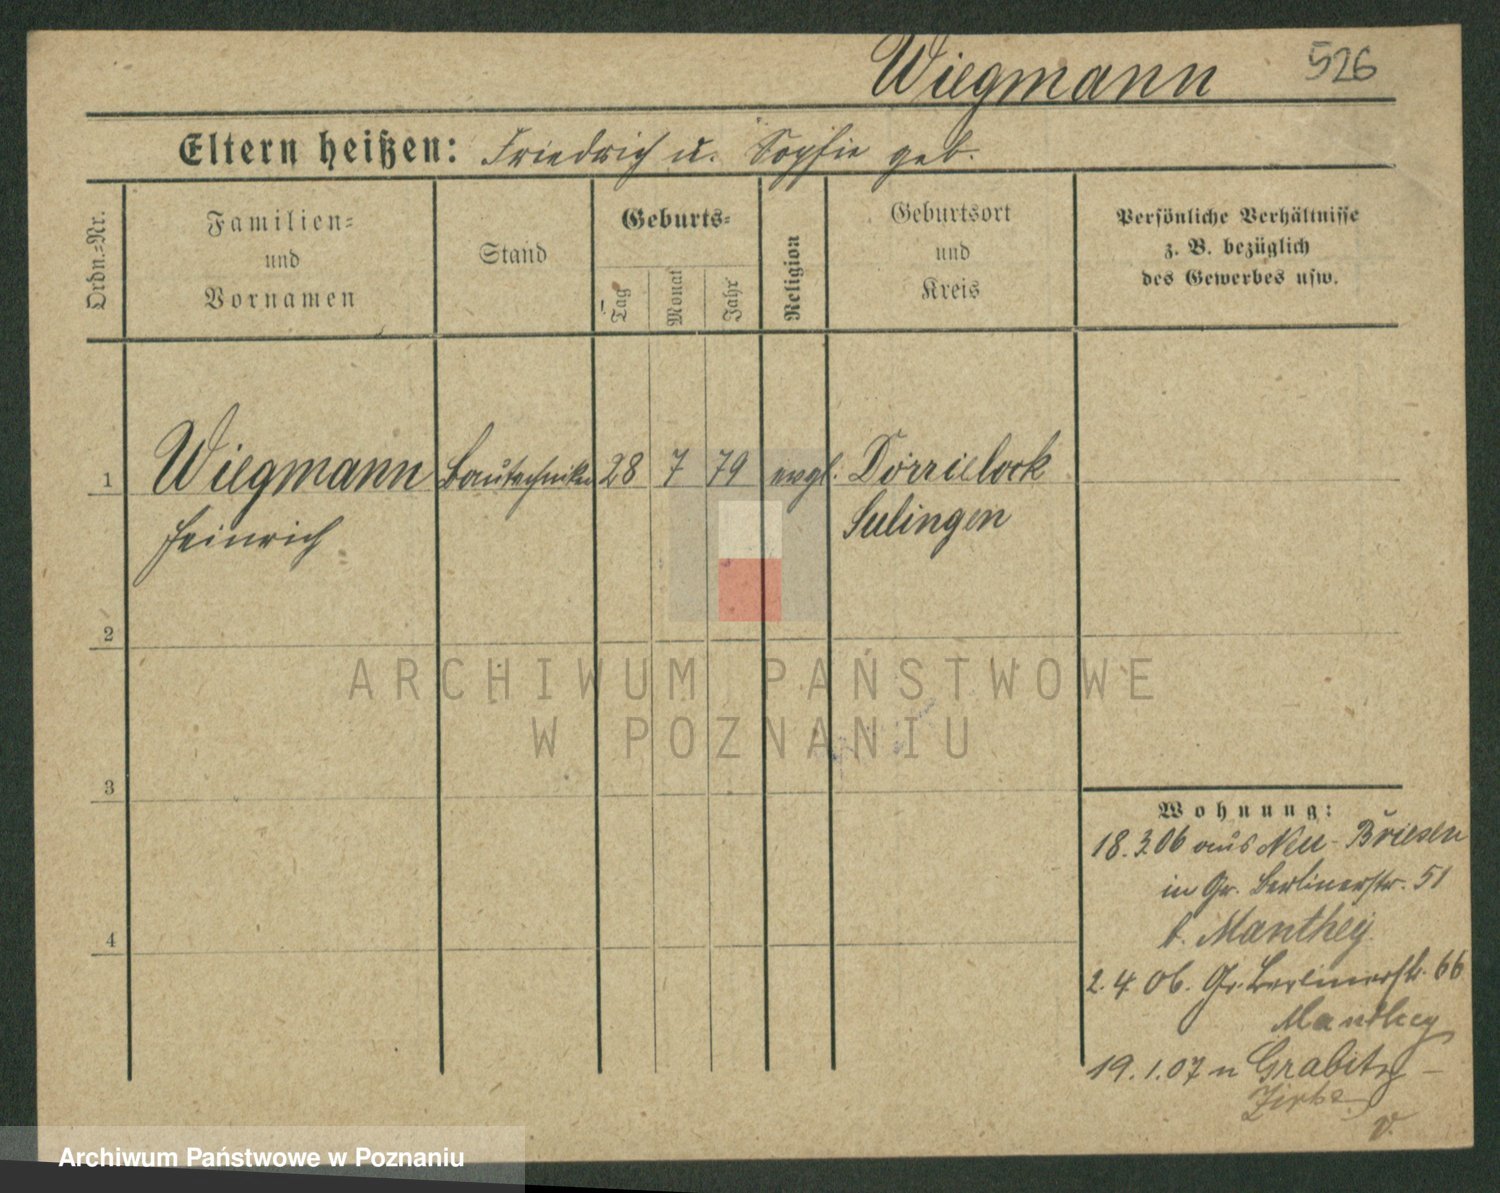 Wiegmann 526
Eltern heißen: Friedrich u. Sophie geb.
Ordn.=Nr.
Familien=
und
Vornamen
Stand
Geburts=
Tag
Monat
Jahr
Religion
Geburtsort
und
Kreis
Persönliche Verhältnisse
z. B. bezüglich
des Gewerbes usw.
1 Wiegmann Bautechniker 28 7 79 evgl. Dörrielock
Heinrich Sulingen
2
3
4
ARCHIWUM PAŃSTWOWE
W POZNANIU
Wohnung:
18.3.06 aus Neu-Briesen
in Gr. Berlinerstr. 51
b. Manthey
2.4.06. Gr. Berlinerstr. 66
Manthey
19.1.07 n Grabitz -
Zirke
v.
Archiwum Państwowe w Poznaniu